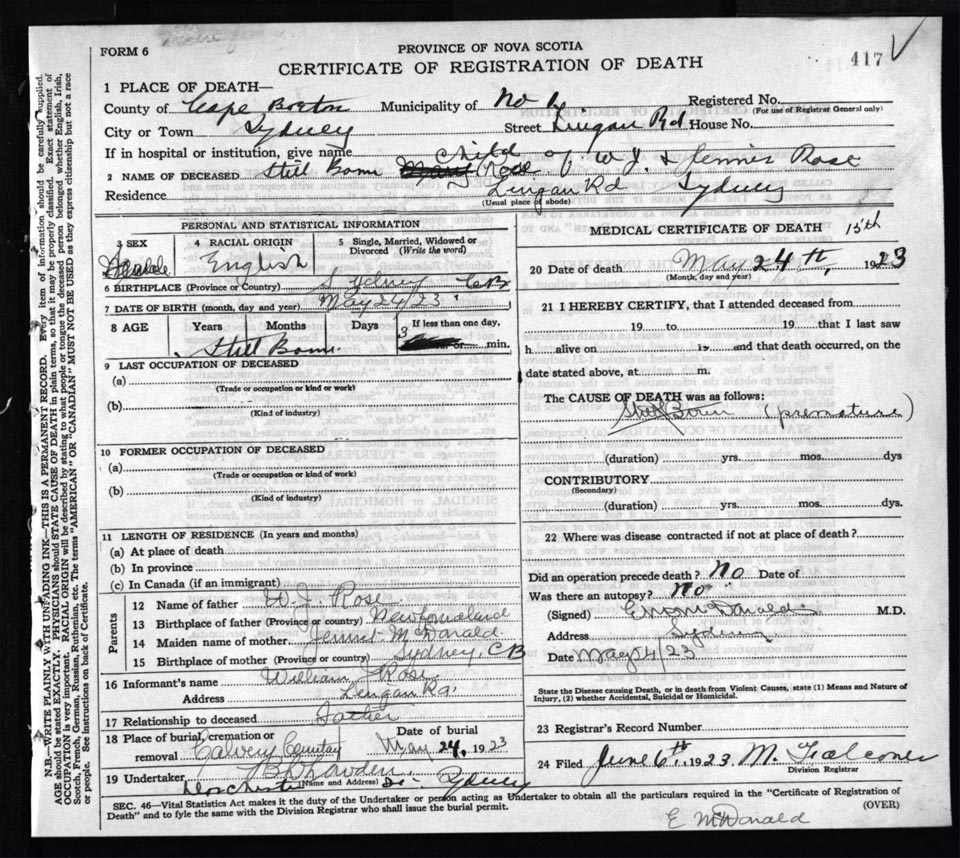 FORM 6
PROVINCE OF NOVA SCOTIA
417
CERTIFICATE OF REGISTRATION OF DEATH
1 PLACE OF DEATH—
County of Cape Breton Municipality of No Registered No.
(For use of Registrar General only)
City or Town Sydney Street Lingan Rd House No.
If in hospital or institution, give name
child of W. J. & Jennie Rose
2 NAME OF DECEASED Still Born Rose
Residence Lingan Rd Sydney
(Usual place of abode)
PERSONAL AND STATISTICAL INFORMATION
3 SEX 4 RACIAL ORIGIN 5 Single, Married, Widowed or Divorced (Write the word)
English
6 BIRTHPLACE (Province or Country) Sydney CB
7 DATE OF BIRTH (month, day and year) May 24/23
8 AGE Years Months Days If less than one day,
Still Born 3 min.
9 LAST OCCUPATION OF DECEASED
(a)
(Trade or occupation or kind or work)
(b)
(Kind of industry)
10 FORMER OCCUPATION OF DECEASED
(a)
(Trade or occupation or kind of work)
(b)
(Kind of industry)
11 LENGTH OF RESIDENCE (In years and months)
(a) At place of death
(b) In province
(c) In Canada (if an immigrant)
Parents
12 Name of father W. J. Rose
13 Birthplace of father (Province or country) Newfoundland
14 Maiden name of mother McDonald
15 Birthplace of mother (Province or country) Sydney, CB
16 Informant's name William Rose
Address Lingan Rd.
17 Relationship to deceased Father
18 Place of burial, cremation or removal Calvery Cemetary Date of burial May 24, 1923
19 Undertaker
(Name and Address)
Dorchester St. Sydney
MEDICAL CERTIFICATE OF DEATH 15th
20 Date of death May 24th, 1923
(Month, day and year)
21 I HEREBY CERTIFY, that I attended deceased from
19 to 19 that I last saw
h alive on 19 and that death occurred, on the
date stated above, at m.
The CAUSE OF DEATH was as follows:
Still Born (premature)
(duration) yrs. mos. dys
CONTRIBUTORY
(Secondary)
(duration) yrs. mos. dys.
22 Where was disease contracted if not at place of death?
Did an operation precede death? No Date of
Was there an autopsy? No
(Signed) McDonald M.D.
Address Sydney
Date May 4/23
State the Disease causing Death, or in death from Violent Causes, state (1) Means and Nature of
Injury, (2) whether Accidental, Suicidal or Homicidal.
23 Registrar's Record Number
24 Filed June 6th 1923 M. Falconer
Division Registrar
SEC. 46—Vital Statistics Act makes it the duty of the Undertaker or person acting as Undertaker to obtain all the particulars required in the "Certificate of Registration of
Death" and to fyle the same with the Division Registrar who shall issue the burial permit.
(OVER)
E McDonald
N.B.—WRITE PLAINLY WITH UNFADING INK—THIS IS A PERMANENT RECORD. Every item of information should be carefully supplied.
AGE should be stated EXACTLY. PHYSICIANS should STATE CAUSE OF DEATH in plain terms, so that it may be properly classified. Exact statement of
OCCUPATION is very important. RACIAL ORIGIN will be described by stating to what people or tongue the deceased person belonged whether English, Irish,
Scotch, French, German, Russian, Ruthenian, etc. The terms "AMERICAN" OR "CANADIAN" MUST NOT BE USED as they express citizenship but not a race
or people. See instructions on back of Certificate.